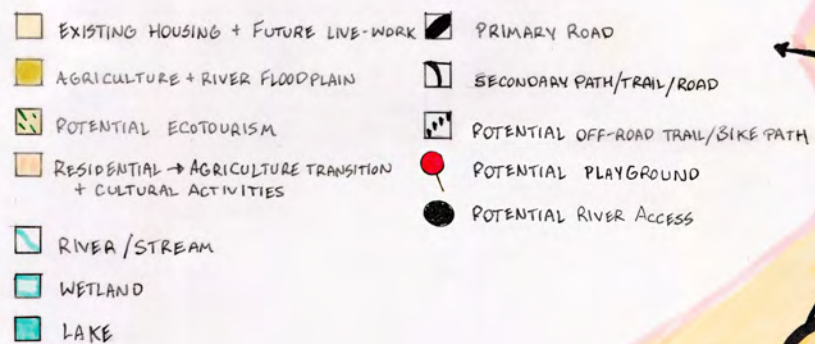 EXISTING HOUSING + FUTURE LIVE-WORK
AGRICULTURE + RIVER FLOODPLAIN
POTENTIAL ECOTOURISM
RESIDENTIAL → AGRICULTURE TRANSITION
+ CULTURAL ACTIVITIES
RIVER/STREAM
WETLAND
LAKE
PRIMARY ROAD
SECONDARY PATH/TRAIL/ROAD
POTENTIAL OFF-ROAD TRAIL/BIKE PATH
POTENTIAL PLAYGROUND
POTENTIAL RIVER ACCESS